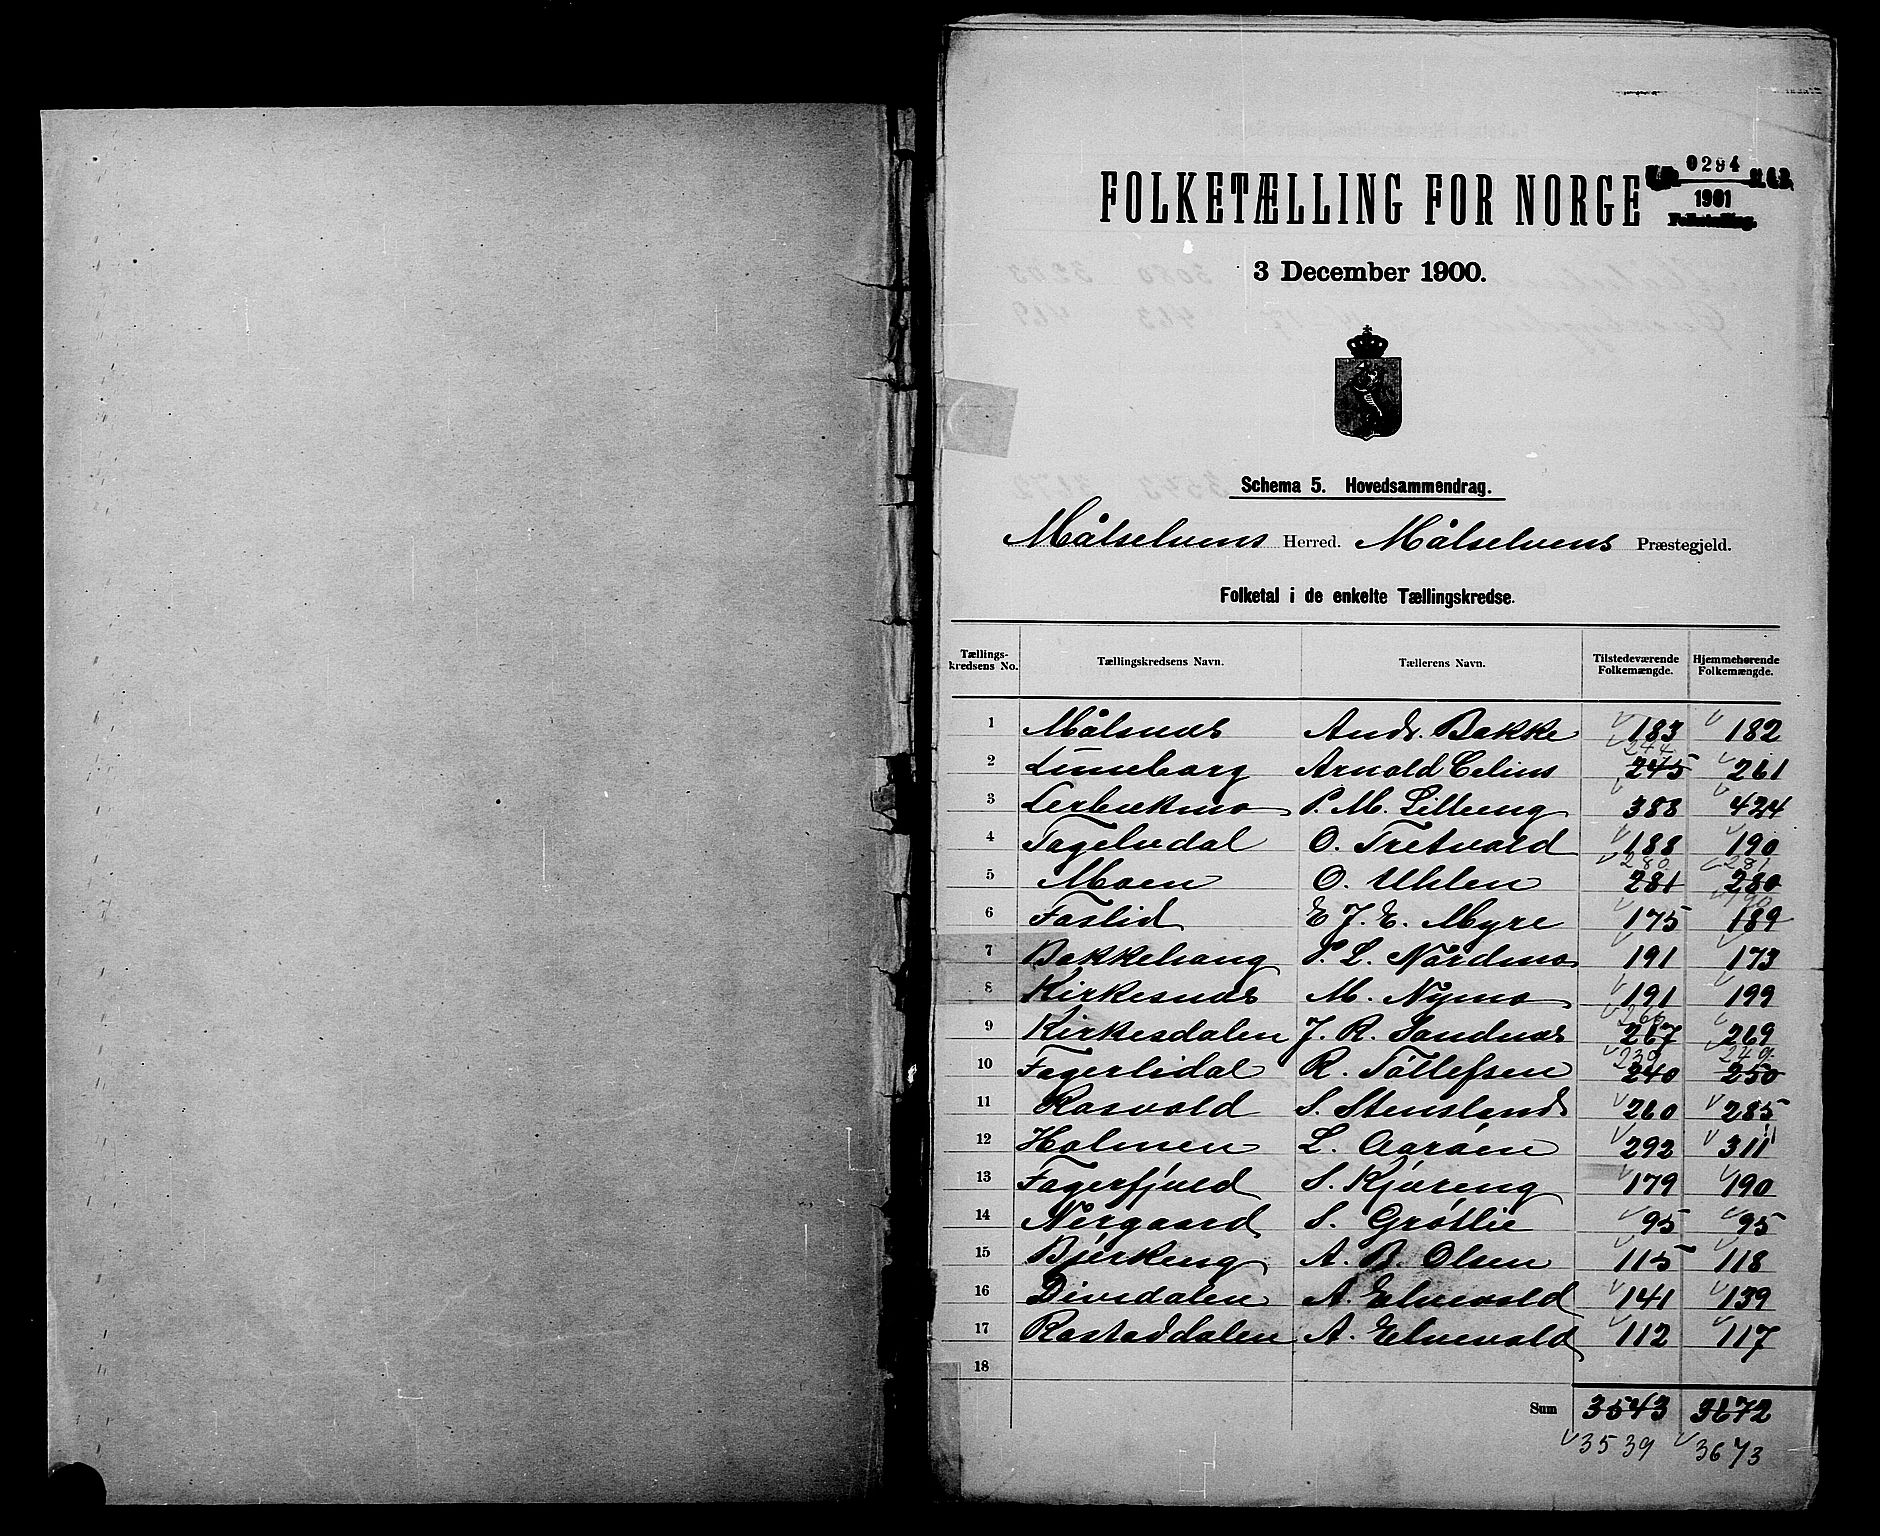 0294
1901
Folketelling.
FOLKETÆLLING FOR NORGE
3 December 1900.
Schema 5. Hovedsammendrag.
Målselvens Herred. Målselvens Præstegjeld.
Folketal i de enkelte Tællingskredse.
Tællingskredsens No. Tællingskredsens Navn. Tællerens Navn. Tilstedeværende Folkemængde. Hjemmehørende Folkemængde.
1 Målsnæs Andr. Bakke 183 182
244
2 Luneborg Arnold Celius 245 261
3 Lerbækmo P. M. Lilleeng 388 424
4 Tagelvdal O. Tretvold 188 190
280 281
5 Moen O. Uhlen 281 280
190
6 Foslid E J. E. Myre 175 189
7 Bakkehaug P. L. Nordmo 191 173
8 Kirkesnæs M. Nymo 191 199
266
9 Kirkesdalen J. R. Sandnæs 267 269
239 249
10 Fagerlidal R. Tollefsen 240 250
11 Rosvold S. Stensland 260 285
12 Holmen L. Aarøen 292 311
13 Fagerfjeld S. Kjæreng 179 190
14 Nergaard S. Grøtlie 95 95
15 Bjørkeng A. B. Olsen 115 118
16 Divedalen A. Elvevold 141 139
17 Rostaddalen A. Elvevold 112 117
18
Sum 3543 3672
3539 3673